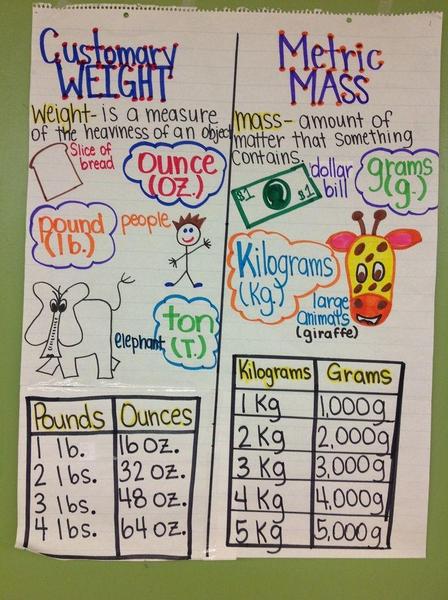 Customary
WEIGHT
Weight- is a measure
of the heaviness of an object
Slice of
bread
Ounce
(oz.)
pound
(lb.)
people
elephant
ton
(T.)
Pounds Ounces
1 lb. 16 oz.
2 lbs. 32 oz.
3 lbs. 48 oz.
4 lbs. 64 oz.
Metric
MASS
mass- amount of
matter that something
contains.
$1 $1
dollar
bill
grams
(g.)
Kilograms
(Kg.)
large
animals
(giraffe)
Kilograms Grams
1 Kg 1,000g
2 Kg 2,000g
3 Kg 3,000g
4 Kg 4,000g
5 Kg 5,000g